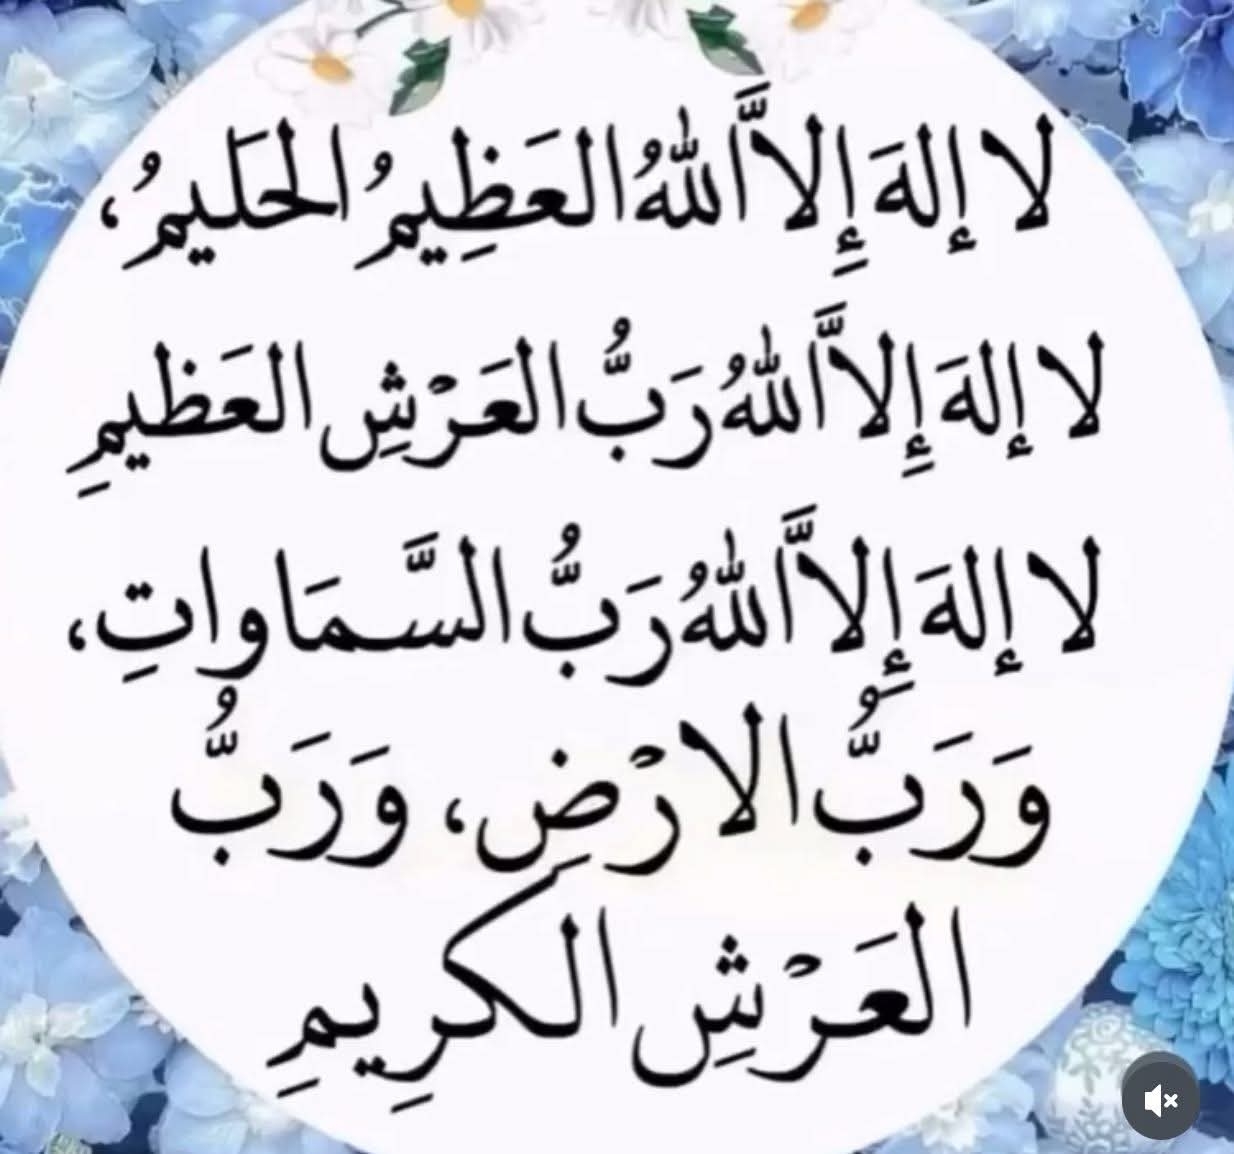 لا إلهَ إِلاَّ اللهُ العَظِيمُ الحَليمُ،
لا إلهَ إِلاَّ اللهُ رَبُّ العَرْشِ العَظيمِ
لا إلهَ إِلاَّ اللهُ رَبُّ السَّمَاواتِ،
وَرَبُّ الارْضِ، وَرَبُّ
العَرْشِ الكرِيمِ